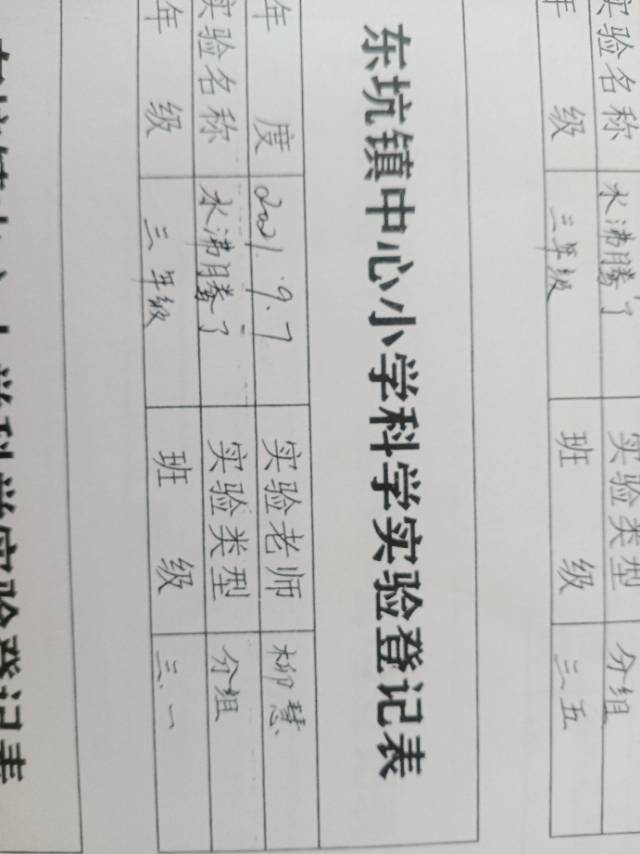 实验名称 水沸腾了 实验类型 分组
年 级 三年级 班 级 三五
东坑镇中心小学科学实验登记表
年 度 2021.9.7 实验老师 柳慧
实验名称 水沸腾了 实验类型 分组
年 级 三年级 班 级 三.一
学科学实验登记表